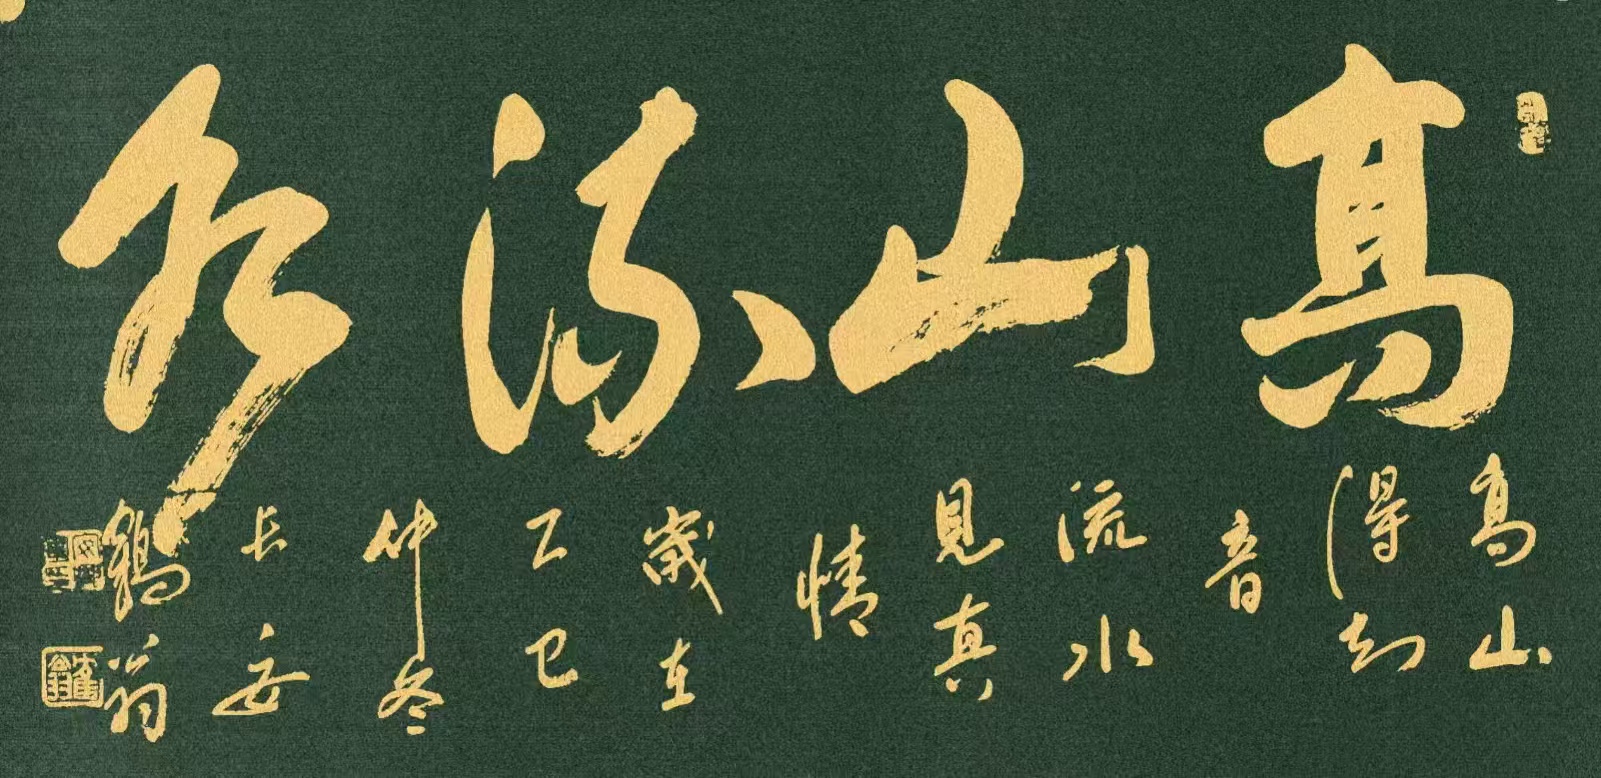 高山流水
高山
得知
音
流水
見真
情
歲在
乙巳
仲冬
長安
鶴翁